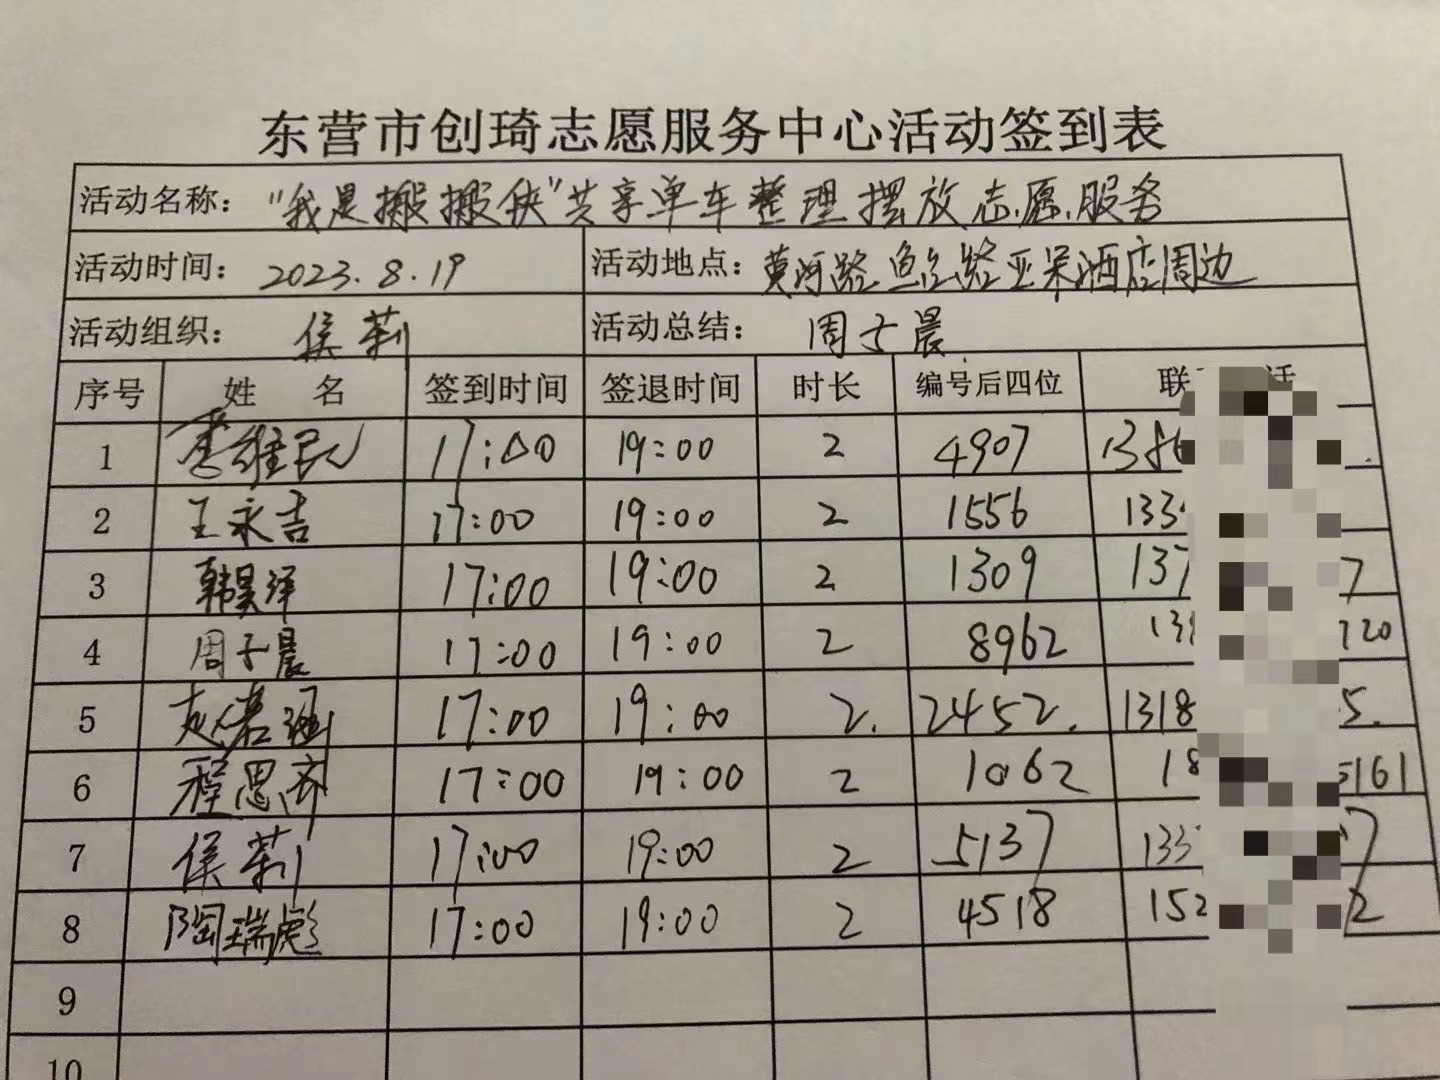 东营市创琦志愿服务中心活动签到表
活动名称："我是搬搬侠"共享单车整理摆放志愿服务
活动时间：2023.8.19 活动地点：黄河路 路亚朵酒店周边
活动组织：侯莉 活动总结：周子晨
序号 姓名 签到时间 签退时间 时长 编号后四位 联
1 李维民 17:00 19:00 2 4907 138
2 王永吉 17:00 19:00 2 1556 133
3 韩昊洋 17:00 19:00 2 1309 137 7
4 周子晨 17:00 19:00 2 8962 13 720
5 赵若涵 17:00 19:00 2. 2452. 1318 5.
6 程思齐 17:00 19:00 2 1062 18 5161
7 侯莉 17:00 19:00 2 5137 133 7
8 陶瑞彪 17:00 19:00 2 4518 152 2
9
10